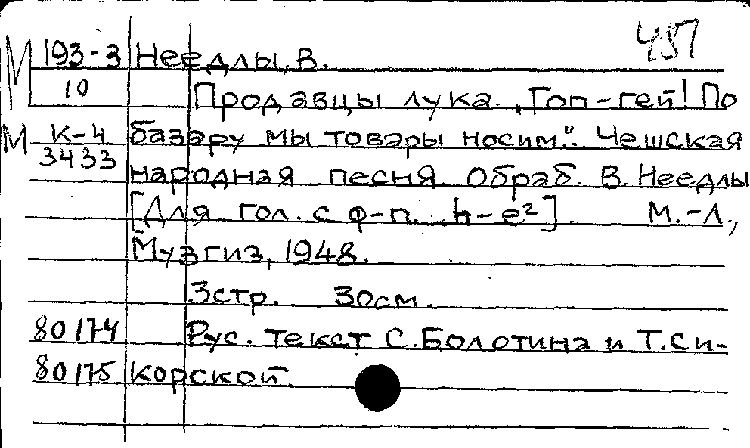 487
М 193-3 Неедлы, В.
10 Продавцы лука. „Гоп-гей! По
М К-4 базару мы товары носим.“ Чешская
3433
народная песня. Обраб. В. Неедлы
[Для гол. с ф-п. h-e²] М.-Л.,
Музгиз, 1948.
3стр. 30см.
80174 Рус. текст С. Болотина и Т. Си-
80175 корской.